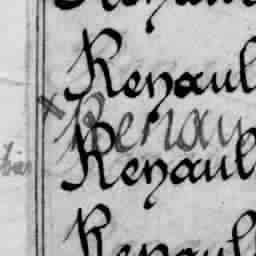 Renaul
Renau
Renaul
Renaul